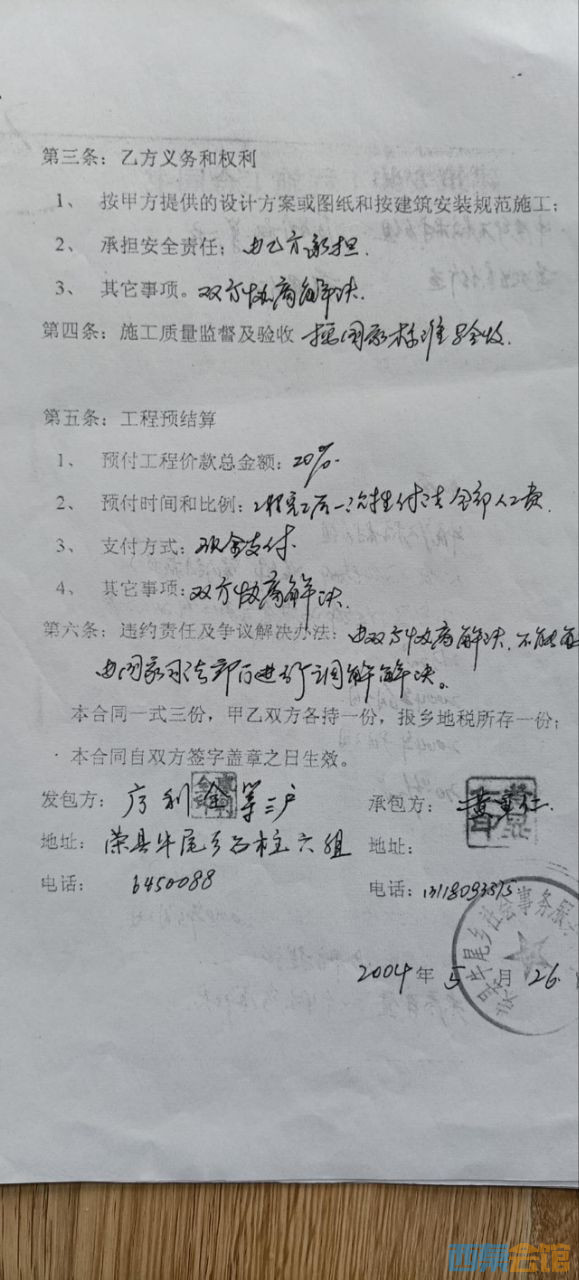 第三条：乙方义务和权利
1、 按甲方提供的设计方案或图纸和按建筑安装规范施工；
2、 承担安全责任；由乙方承担.
3、 其它事项。双方协商解决.
第四条：施工质量监督及验收 按国家标准验收.
第五条：工程预结算
1、 预付工程价款总金额：20%.
2、 预付时间和比例：工程完工后一次性付清全部人工费.
3、 支付方式：现金支付.
4、 其它事项：双方协商解决.
第六条：违约责任及争议解决办法：由双方协商解决.不能
由国家司法部门进行调解解决。
本合同一式三份，甲乙双方各持一份，报乡地税所存一份；
本合同自双方签字盖章之日生效。
发包方： 利金等三户 承包方：黄 仁.
地址： 荣县牛尾乡石柱六组 地址：
电话： 6450088 电话：
牛尾乡社会事务服
2004年5月26
西祠会馆